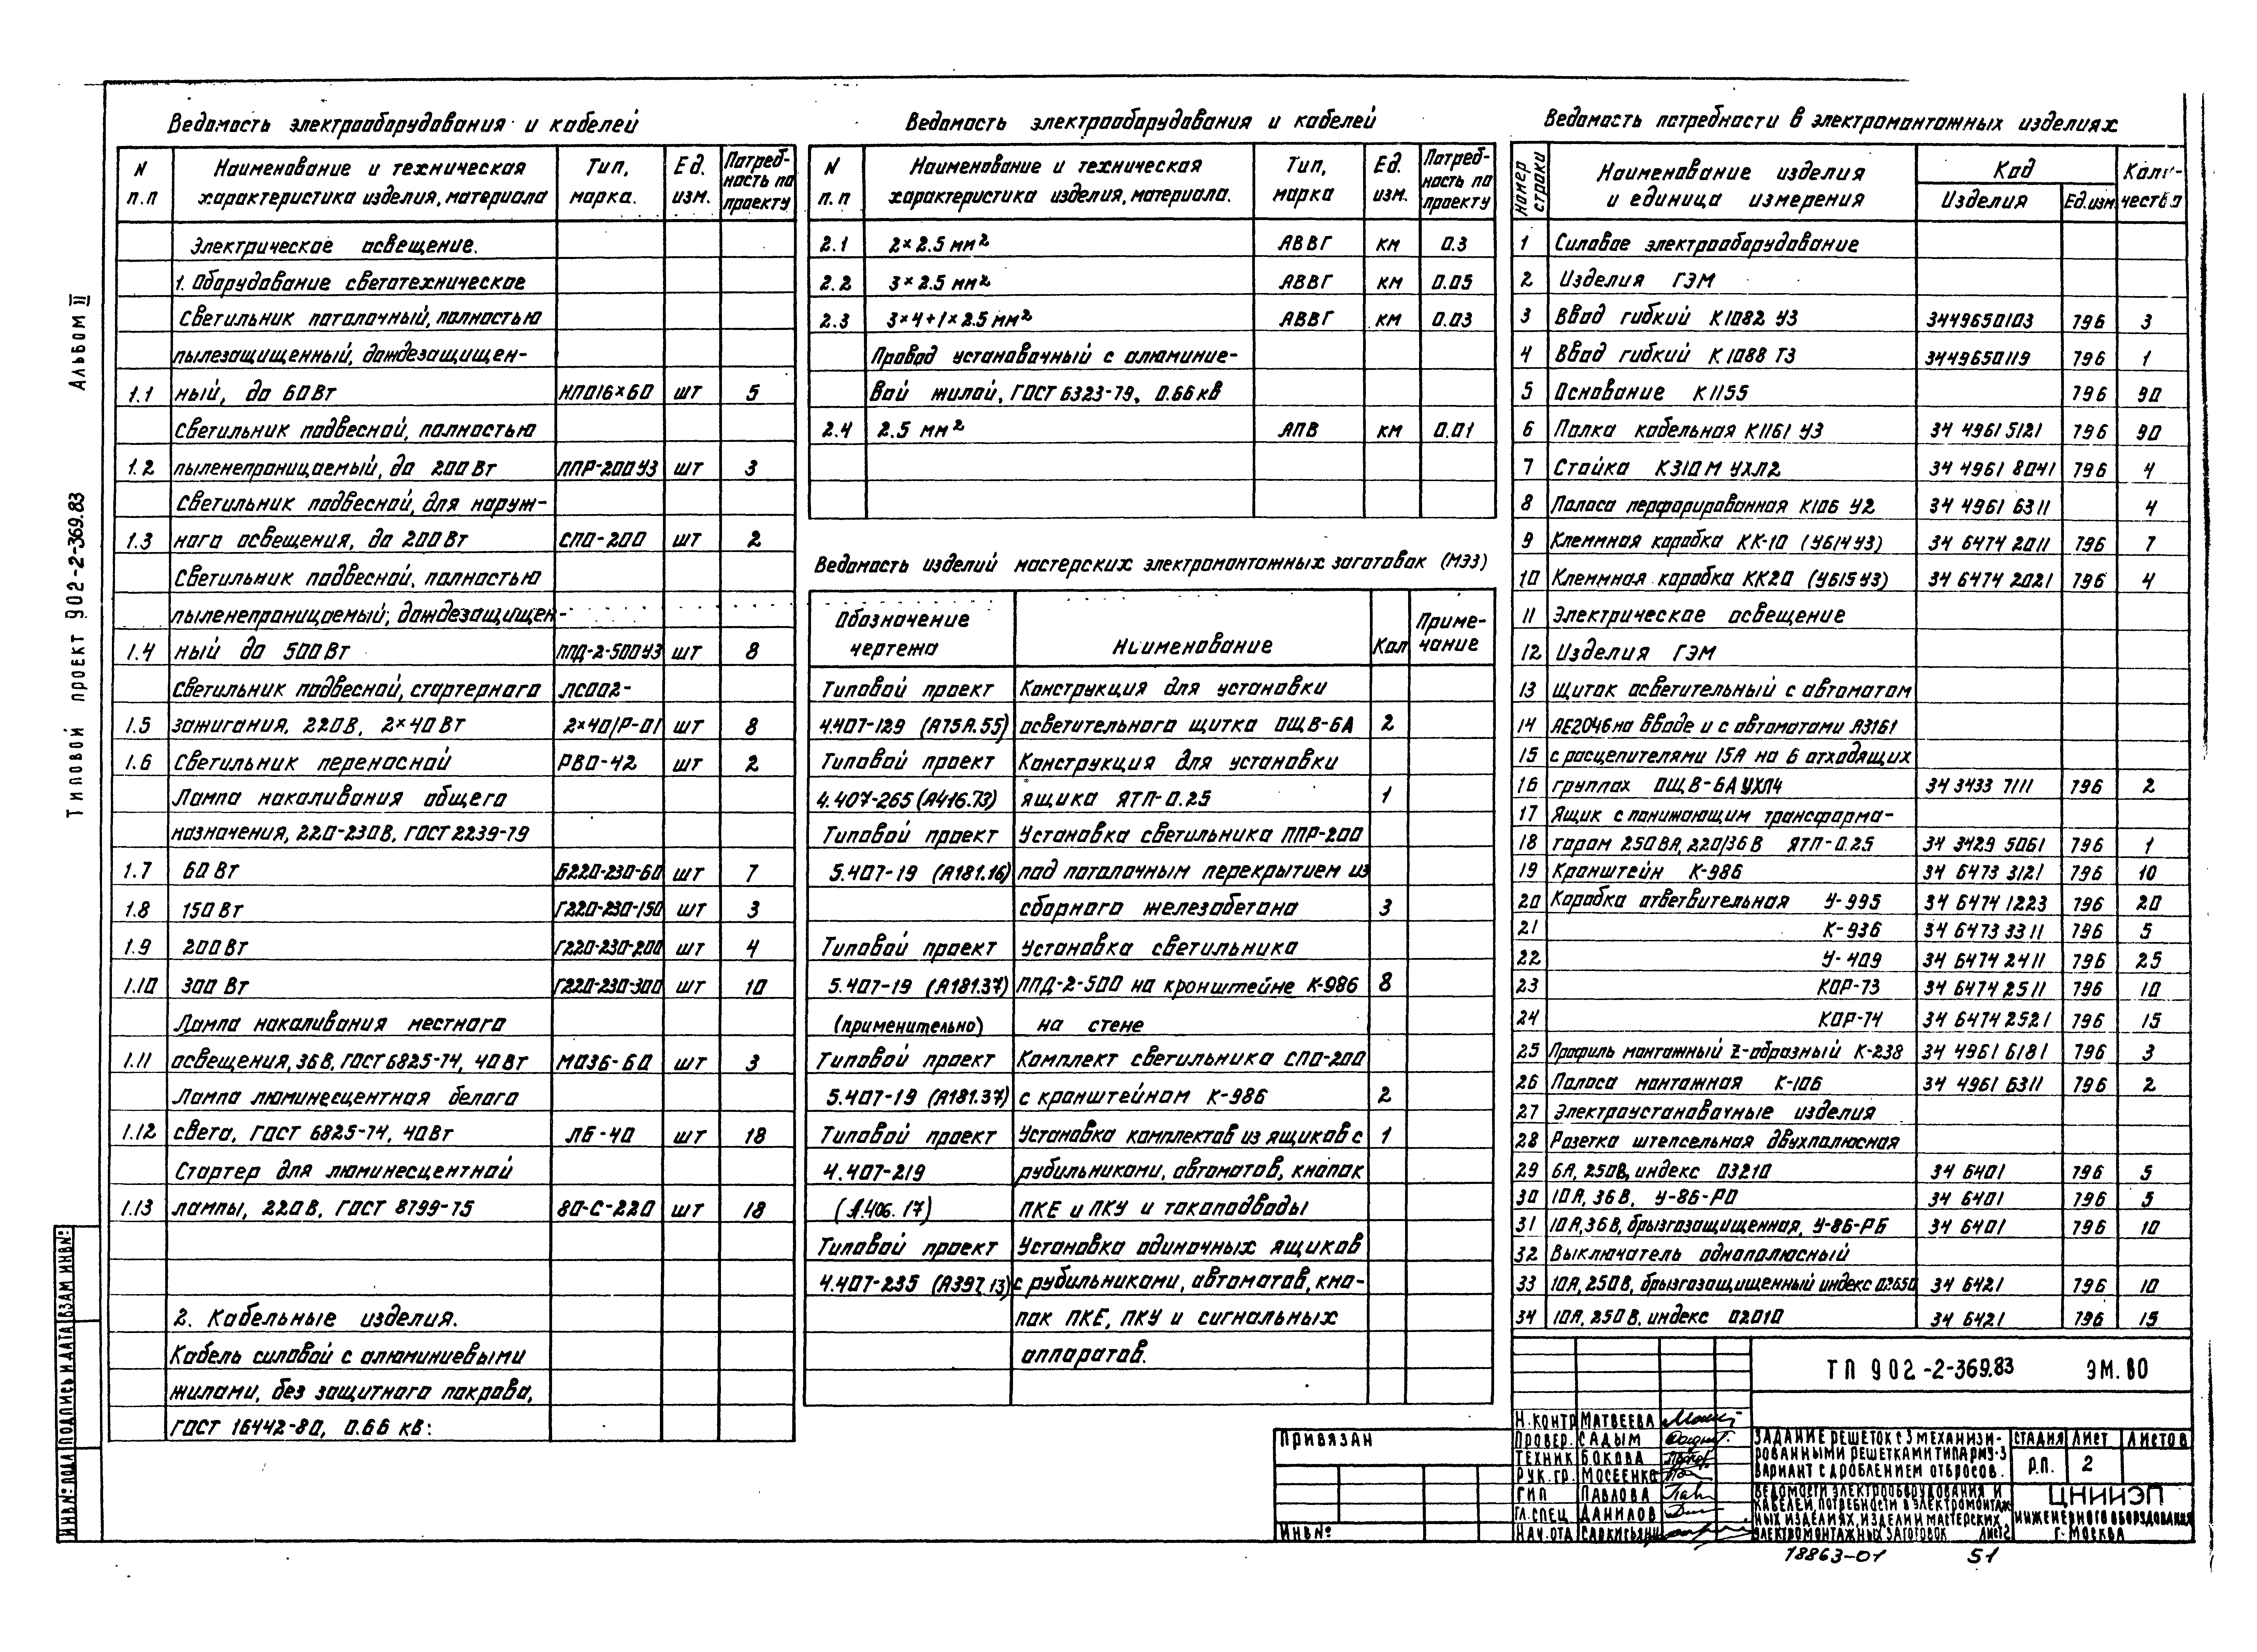 Альбом II
Типовой проект 902-2-369.83
Ведомость электрооборудования и кабелей
N п.п | Наименование и техническая характеристика изделия, материала | Тип, марка. | Ед. изм. | Потребность по проекту
Электрическое освещение.
1. Оборудование светотехническое
Светильник потолочный, полностью
пылезащищенный, дождезащищен-
1.1 ный, до 60Вт НПО16×60 шт 5
Светильник подвесной, полностью
1.2 пыленепроницаемый, до 200Вт ППР-200У3 шт 3
Светильник подвесной, для наруж-
1.3 ного освещения, до 200Вт СПО-200 шт 2
Светильник подвесной, полностью
пыленепроницаемый; дождезащищен-
1.4 ный до 500Вт ППД-2-500У3 шт 8
Светильник подвесной, стартерного ЛСО02-
1.5 зажигания, 220В, 2×40Вт 2×40/Р-01 шт 8
1.6 Светильник переносной РВО-42 шт 2
Лампа накаливания общего
назначения, 220-230В, ГОСТ 2239-79
1.7 60Вт Б220-230-60 шт 7
1.8 150Вт Г220-230-150 шт 3
1.9 200Вт Г220-230-200 шт 4
1.10 300Вт Г220-230-300 шт 10
Лампа накаливания местного
1.11 освещения, 36В, ГОСТ 6825-74, 40Вт МО36-60 шт 3
Лампа люминесцентная белого
1.12 света, ГОСТ 6825-74, 40Вт ЛБ-40 шт 18
Стартер для люминесцентной
1.13 лампы, 220В, ГОСТ 8799-75 80-С-220 шт 18
2. Кабельные изделия.
Кабель силовой с алюминиевыми
жилами, без защитного покрова,
ГОСТ 16442-80, 0.66 кв:
Ведомость электрооборудования и кабелей
N п.п | Наименование и техническая характеристика изделия, материала. | Тип, марка | Ед. изм. | Потребность по проекту
2.1 2×2.5 мм² АВВГ км 0.3
2.2 3×2.5 мм² АВВГ км 0.05
2.3 3×4+1×2.5 мм² АВВГ км 0.03
Провод установочный с алюминие-
вой жилой, ГОСТ 6323-79, 0.66кв
2.4 2.5 мм² АПВ км 0.01
Ведомость изделий мастерских электромонтажных заготовок (МЭЗ)
Обозначение чертежа | Наименование | Кол | Примечание
Типовой проект Конструкция для установки
4.407-129 (А75А.55) осветительного щитка ОЩВ-6А 2
Типовой проект Конструкция для установки
4.407-265 (А416.73) ящика ЯТП-0.25 1
Типовой проект Установка светильника ППР-200
5.407-19 (А181.16) под потолочным перекрытием из
сборного железобетона 3
Типовой проект Установка светильника
5.407-19 (А181.37) ППД-2-500 на кронштейне К-986 8
(применительно) на стене
Типовой проект Комплект светильника СПО-200
5.407-19 (А181.37) с кронштейном К-986 2
Типовой проект Установка комплектов из ящиков с 1
4.407-219 рубильниками, автоматов, кнопок
(А.406.17) ПКЕ и ПКУ и токоподводы
Типовой проект Установка одиночных ящиков
4.407-235 (А397.13) с рубильниками, автоматов, кно-
пок ПКЕ, ПКУ и сигнальных
аппаратов.
Ведомость потребности в электромонтажных изделиях
Номер строки | Наименование изделия и единица измерения | Код | Изделия | Ед.изм | Количество
1 Силовое электрооборудование
2 Изделия ГЭМ
3 Ввод гибкий К1082 У3 3449650103 796 3
4 Ввод гибкий К1088 Т3 3449650119 796 1
5 Основание К1155 796 90
6 Полка кабельная К1161 У3 34 4961 5121 796 90
7 Стойка К310М УХЛ2 34 4961 8041 796 4
8 Полоса перфорированная К106 У2 34 4961 6311 4
9 Клеммная коробка КК-10 (У614У3) 34 6474 2011 796 7
10 Клеммная коробка КК20 (У615У3) 34 6474 2021 796 4
11 Электрическое освещение
12 Изделия ГЭМ
13 Щиток осветительный с автоматом
14 АЕ2046 на вводе и с автоматами А3161
15 с расцепителями 15А на 6 отходящих
16 группах ОЩВ-6АУХЛ4 34 3433 7111 796 2
17 Ящик с понижающим трансформа-
18 тором 250ВА, 220/36В ЯТП-0.25 34 3429 5061 796 1
19 Кронштейн К-986 34 6473 3121 796 10
20 Коробка ответвительная У-995 34 6474 1223 796 20
21 К-936 34 6473 3311 796 5
22 У-409 34 6474 2411 796 25
23 КОР-73 34 6474 2511 796 10
24 КОР-74 34 6474 2521 796 15
25 Профиль монтажный Z-образный К-238 34 4961 6181 796 3
26 Полоса монтажная К-106 34 4961 6311 796 2
27 Электроустановочные изделия
28 Розетка штепсельная двухполюсная
29 6А, 250В, индекс 03210 34 6401 796 5
30 10А, 36В, У-86-РО 34 6401 796 5
31 10А, 36В, брызгозащищенная, У-86-РБ 34 6401 796 10
32 Выключатель однополюсный
33 10А, 250В, брызгозащищенный индекс 02650 34 6421 796 10
34 10А, 250В, индекс 02010 34 6421 796 15
ТП 902-2-369.83 ЭМ.ВО
Н.контр Матвеева
Провер. Садым
Техник Бокова
Рук.гр. Мосеенко
ГИП Павлова
Гл.спец Данилов
Нач.отд
Здание решеток с 3 механизи-
рованными решетками типа РМУ-3
Вариант с дроблением отбросов.
Стадия Лист Листов
Р.П. 2
Ведомости электрооборудования и
кабелей, потребности в электромонтаж
ных изделиях, изделий мастерских
электромонтажных заготовок Лист 2
ЦНИИЭП
инженерного оборудования
г. Москва
Привязан
Инв №
Инв№подл Подпись и дата Взам инв№
18863-01 51